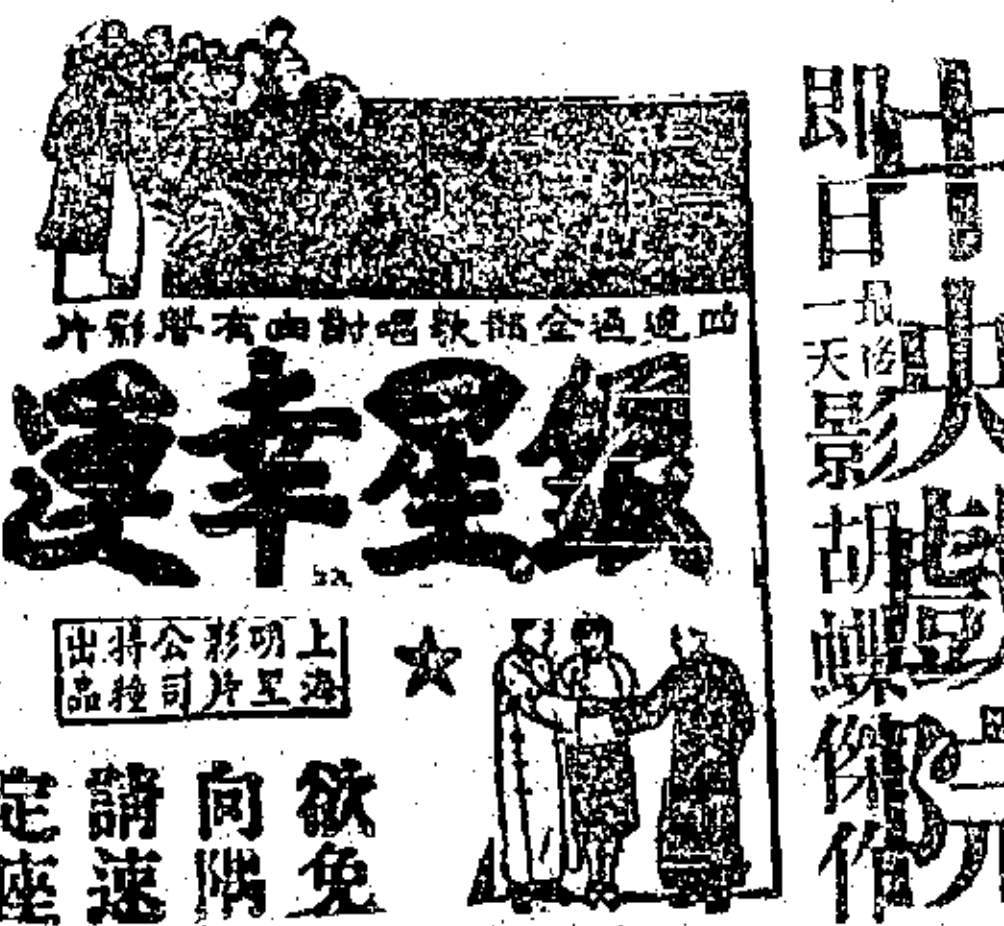 中央戲院
即日
最後
一天
影
胡蝶傑作
四達通全部歌唱對有聲影片
銀星幸運
上海明星影片公司特種出品
欲免向隅請速定座